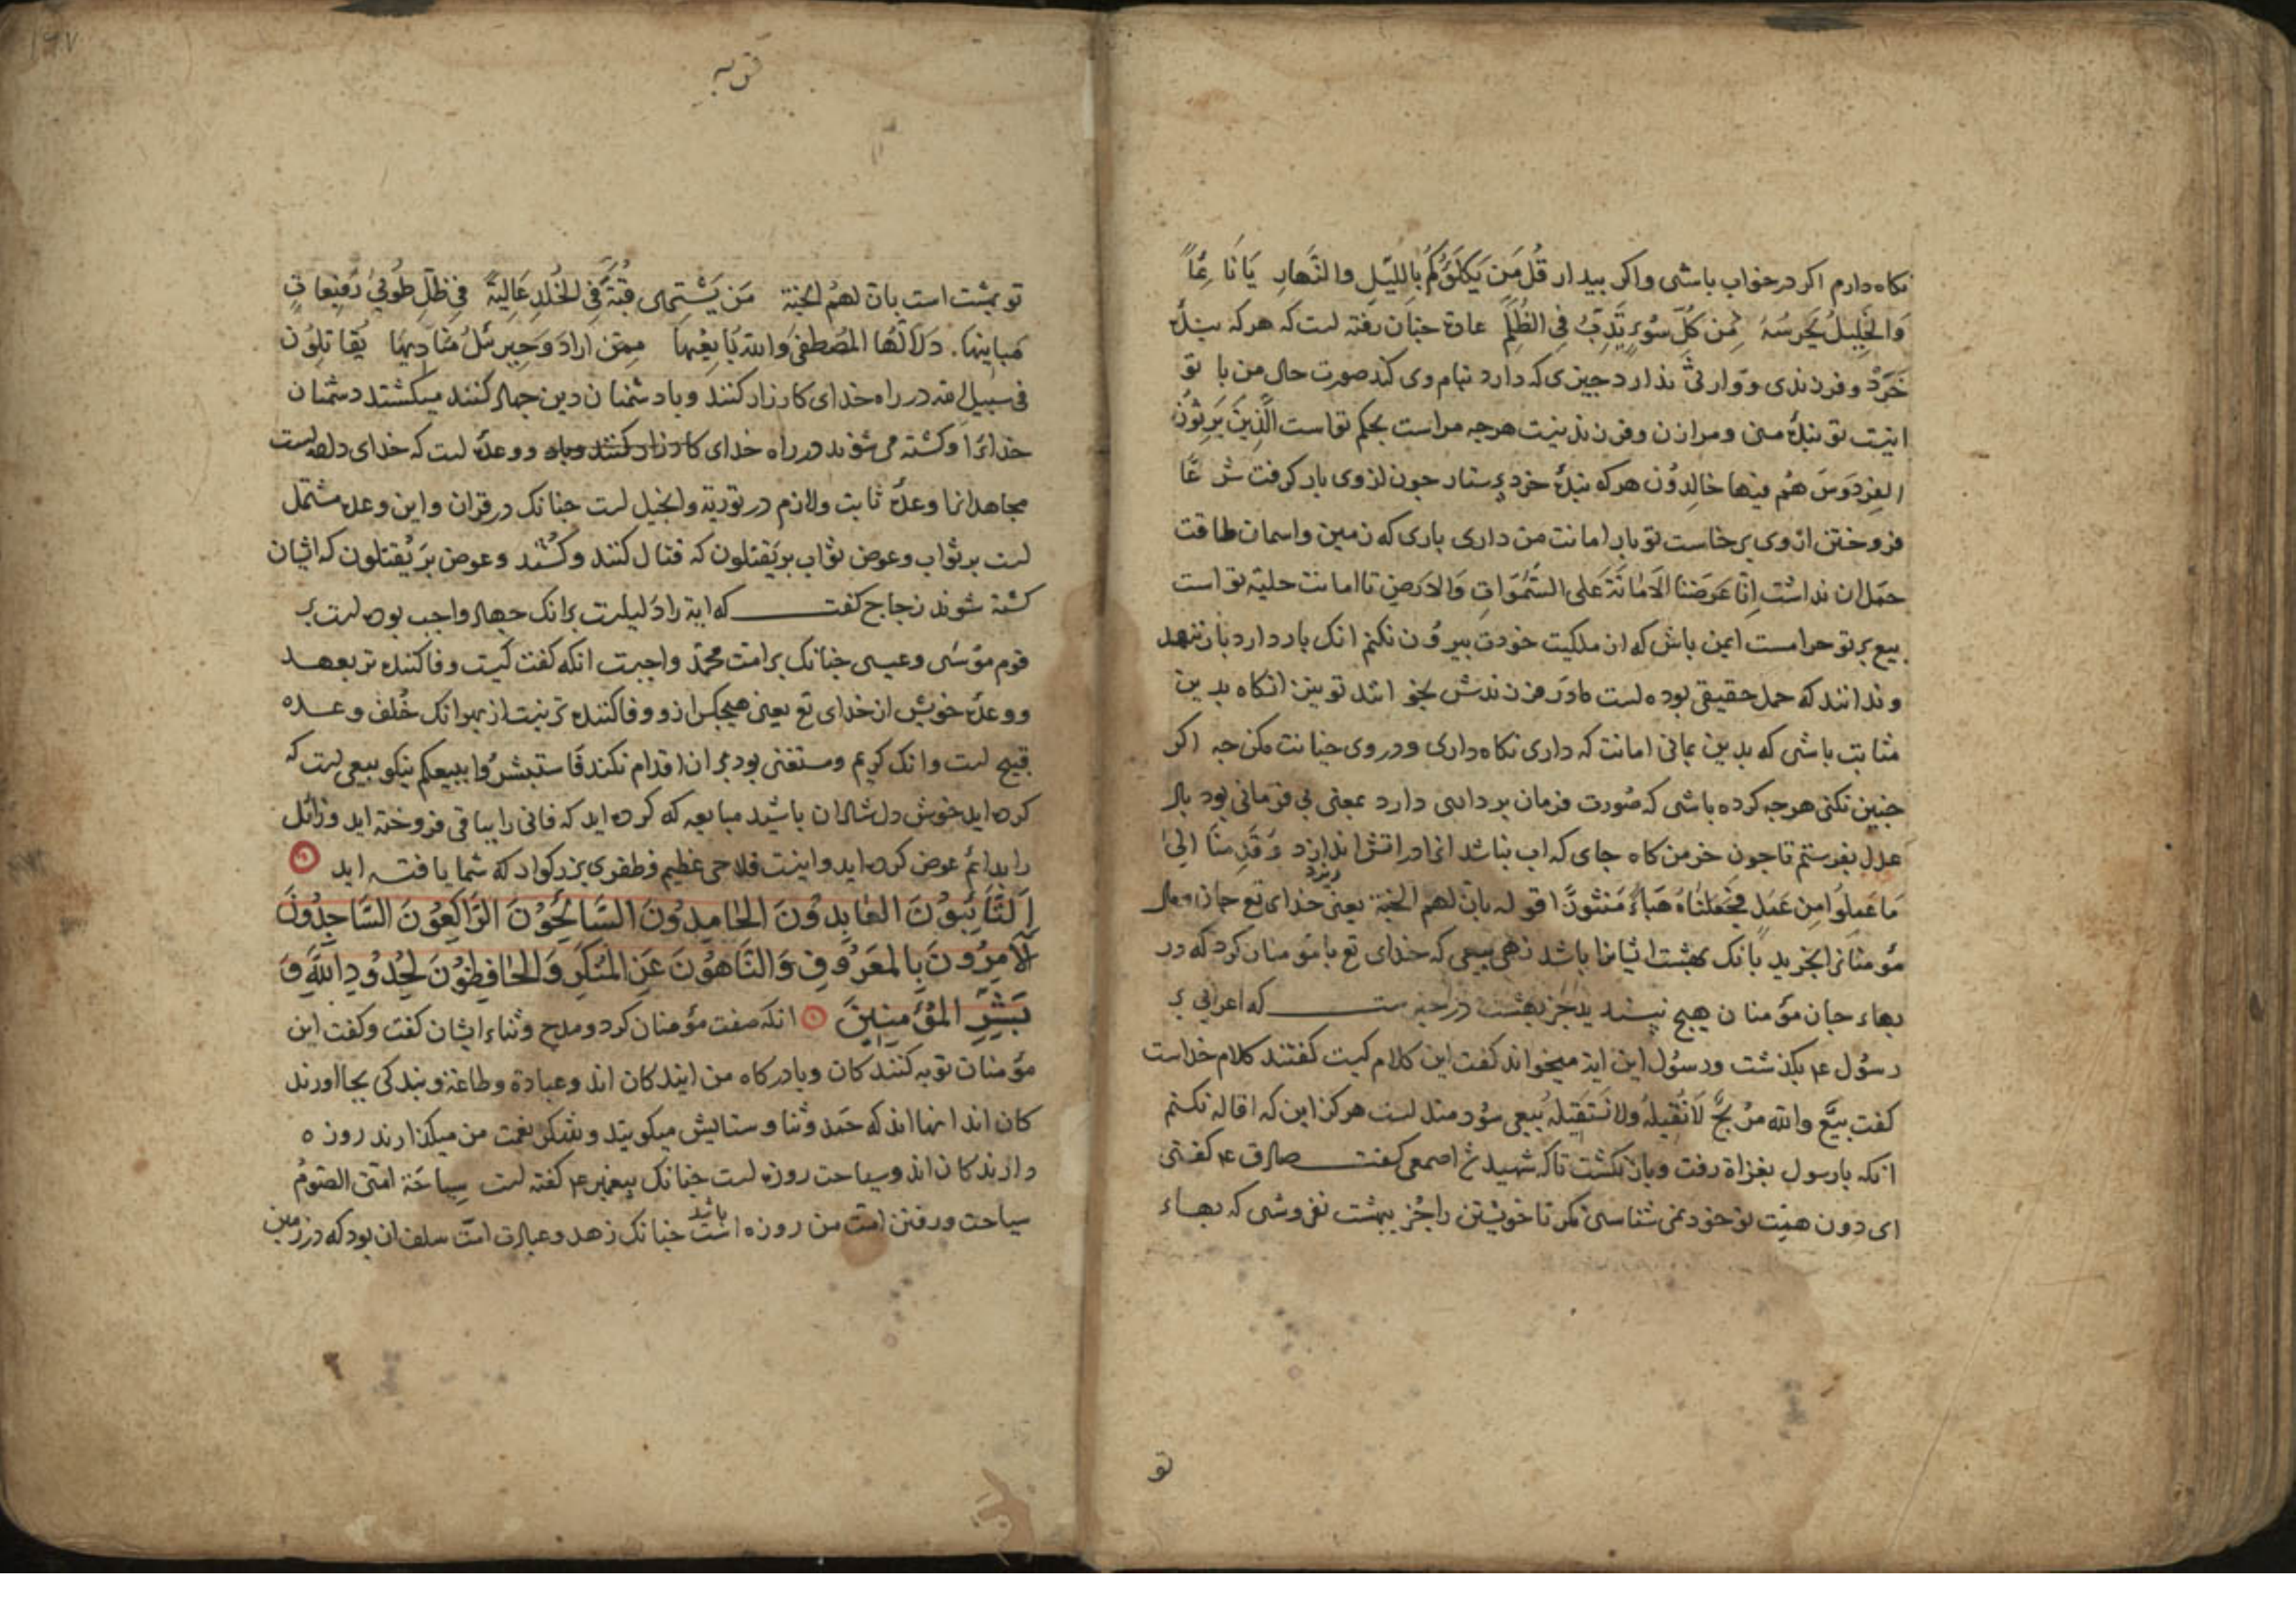 نکاه دارم اکر در خواب باشی واکر بیدار قُل مَن یَکلَؤُکُم بِاللَّیلِ والنَّهارِ یَانَا
وَالجَلِیلُ یَحرسُهُ مِن کُلِّ سُوءٍ یَدِبُّ فِی الظُلَمِ عادة جنان رفته است که هر که بندهٔ
خَرَدْ و فرزندی و وارثی ندارد جیزی که دارد بنام وی کند صورت حال من با تو
اینست تو بندهٔ منی و مرا زن و فرزند نیست هرجه مراست بحکم تواست الَّذِینَ یَرِثُونَ
الفِردَوسَ هُم فیها خالِدُون هر که بندهٔ خرد برستار جون از وی بار کرفت شرعًا
فروختن از وی برخاست تو بار امانت من داری باری که زمین واسمان طاقت
حمل ان نداشت اِنّا عَرَضنَا الاَمانَةَ عَلی السَّمٰوَاتِ وَالاَرضِ تا امانت حلیهٔ تواست
بیع بر تو حرامست ایمن باش که از ملکیت خودت بیرون نکنم انک بار دارد بار ننهد
و ندانند که حمل حقیقی بوده است مادر فرزندش نخوانند تو نیز انکاه بدین
مثابت باشی که بدین معانی امانت که داری نکاه داری و در وی خیانت مکن جه اکر
جنین نکنی هرجه کرده باشی که صُورت فرمان برداری دارد بمعنی بی فرمانی بود باد
عدل بفرستم تا جون خرمن کاه جای که اب نباشد انرا در اتش اندازد وَقَدِمنَا الیٰ
ریزد
مَا عَمِلُوا مِن عَمَل فَجَعَلنَاهُ هَبَاءً مَنثُورًا قوله بان لهم الجنة یعنی خدای تع جان ومال
مؤمنانرا بخرید بانک بهشت ایشانرا باشد زهی بیعی که خدای تع با مؤمنان کرد که در
بهاء جان مؤمنان هیچ نپسندید جز بهشت در خبر ست که اعرابی بر
رسُول ع م بکذشت و رسُول این ایة میخواند کفت این کلام کیست کفتند کلام خداست
کفت بیعٌ والله مُربحٌ لانُقیلهُ ولا نَستَقِیلهُ بیعی سُودمند است هرکز این که اقاله نکنم
انکه با رسول بغزاة رفت و باز نکشت تا که شهید شد اصمعی کفت صادق ع م کفتی
ای دون همت تو خود نمی شناسی مکر تا خویشتن را جز ببهشت نفروشی که بهاء
تو
توبه
۱۹۷
تو بهشت است بان لهم الجنة مَن یَشتَرِی قُبَّةً فِی الخُلدِ عَالِیَةً فِی ظِلِّ طُوبیٰ رَفِیعاتٍ
مَبانِیهَا. دَلَّالُهَا المُصطفٰی وَاللهُ بَایِعُها مِمَّن ارَادَ وَجِبرئلُ مُنَادِیهَا یُقَاتِلُون
فی سبیل الله در راه خدای کارزار کنند و با دشمنان دین جهاد کنند میکشند دشمنان
خدایرا و کشته می شوند در راه خدای کارزار کنند وباد و وعدهٔ است که خدای داده است
مجاهدانرا وعدهٔ ثابت ولازم در توریة وانجیل است جنانک در قران واین وعده مشتمل
است بر ثواب وعوض ثواب بر یَقتلون که قتال کنند و کشند وعوض بر یُقتلون که ایشان
کشته شوند زجاج کفت که ایة را دلیلست بر انک جهاد واجب بوده است بر
قوم موسٰی وعیسی جنانک بر امت محمّد واجبست انکه کفت کیست وفا کننده تر بعهد
و وعدهٔ خویش از خدای تع یعنی هیجکس از و وفا کننده تر نیست از بهر انک خُلف وعده
قبیح است وانک کریم ومستغنی بود بر ان اقدام نکند فَاستَبشرُوا ببیعکم نیکو بیعی است که
کرده اید خوش دل شادان باشید مبایعه که کرده اید که فانی را بباقی فروخته اید وزائل
را بدائم عوض کرده اید واینست فلاحی عظیم وظفری بزرکوار که شما یافته اید
اَلتَّائِبُونَ العَابِدُونَ الحَامِدُونَ السَّائِحُونَ الرَّاکِعُونَ السَّاجِدُونَ
الاٰمِرُونَ بِالمَعرُوفِ وَالنَّاهُونَ عَنِ المُنکَرِ وَالحَافِظُونَ لِحُدُودِ اللهِ وَ
بَشِّرِ المُؤمِنِینَ انکه صفت مؤمنان کرد و مدح وثناء ایشان کفت وکفت این
مؤمنان توبه کنندکان وبا درکاه من ایندکان اند وعبادة وطاعة وبندکی بجا اورند
کان اند انها اند که حَمد وثنا وستایش میکویند وشکر نعمت من میکذارند روزه
دارندکان اند وسیاحت روزه است جنانک پیغمبر ع م کفته است سِیاحَة امّتی الصَّومُ
سیاحت ورفتن امّت من روزه است جنانک زهد وعبادت امّت سلف ان بود که در زمین
باشد